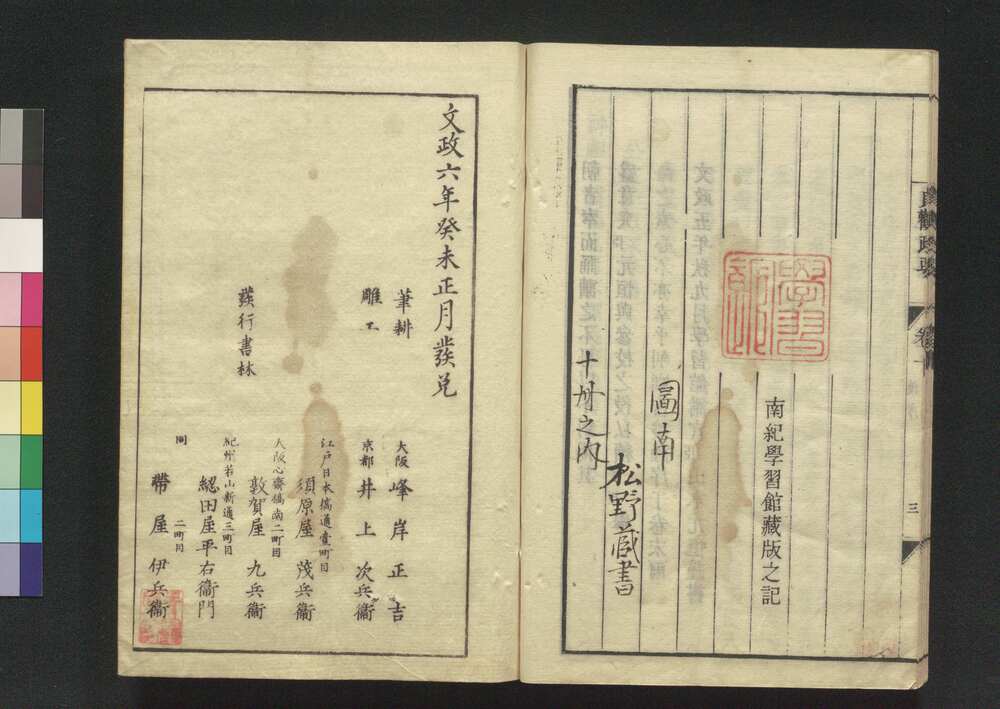 貞觀政要
卷十
三
學習館印
南紀學習館藏版之記
圖南
松野蔵書
十冊之内
文政六年癸未正月發兌
筆耕 大阪 峰岸正吉
雕工 京都 井上次兵衞
江戸日本橋通壹町目
須原屋茂兵衞
大阪心齋橋南二町目
敦賀屋九兵衞
發行書林
紀州若山新通三町目
綛田屋平右衞門
同 二町目
帶屋伊兵衞